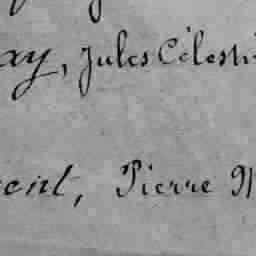 ay, Jules Célesti
cent, Pierre M